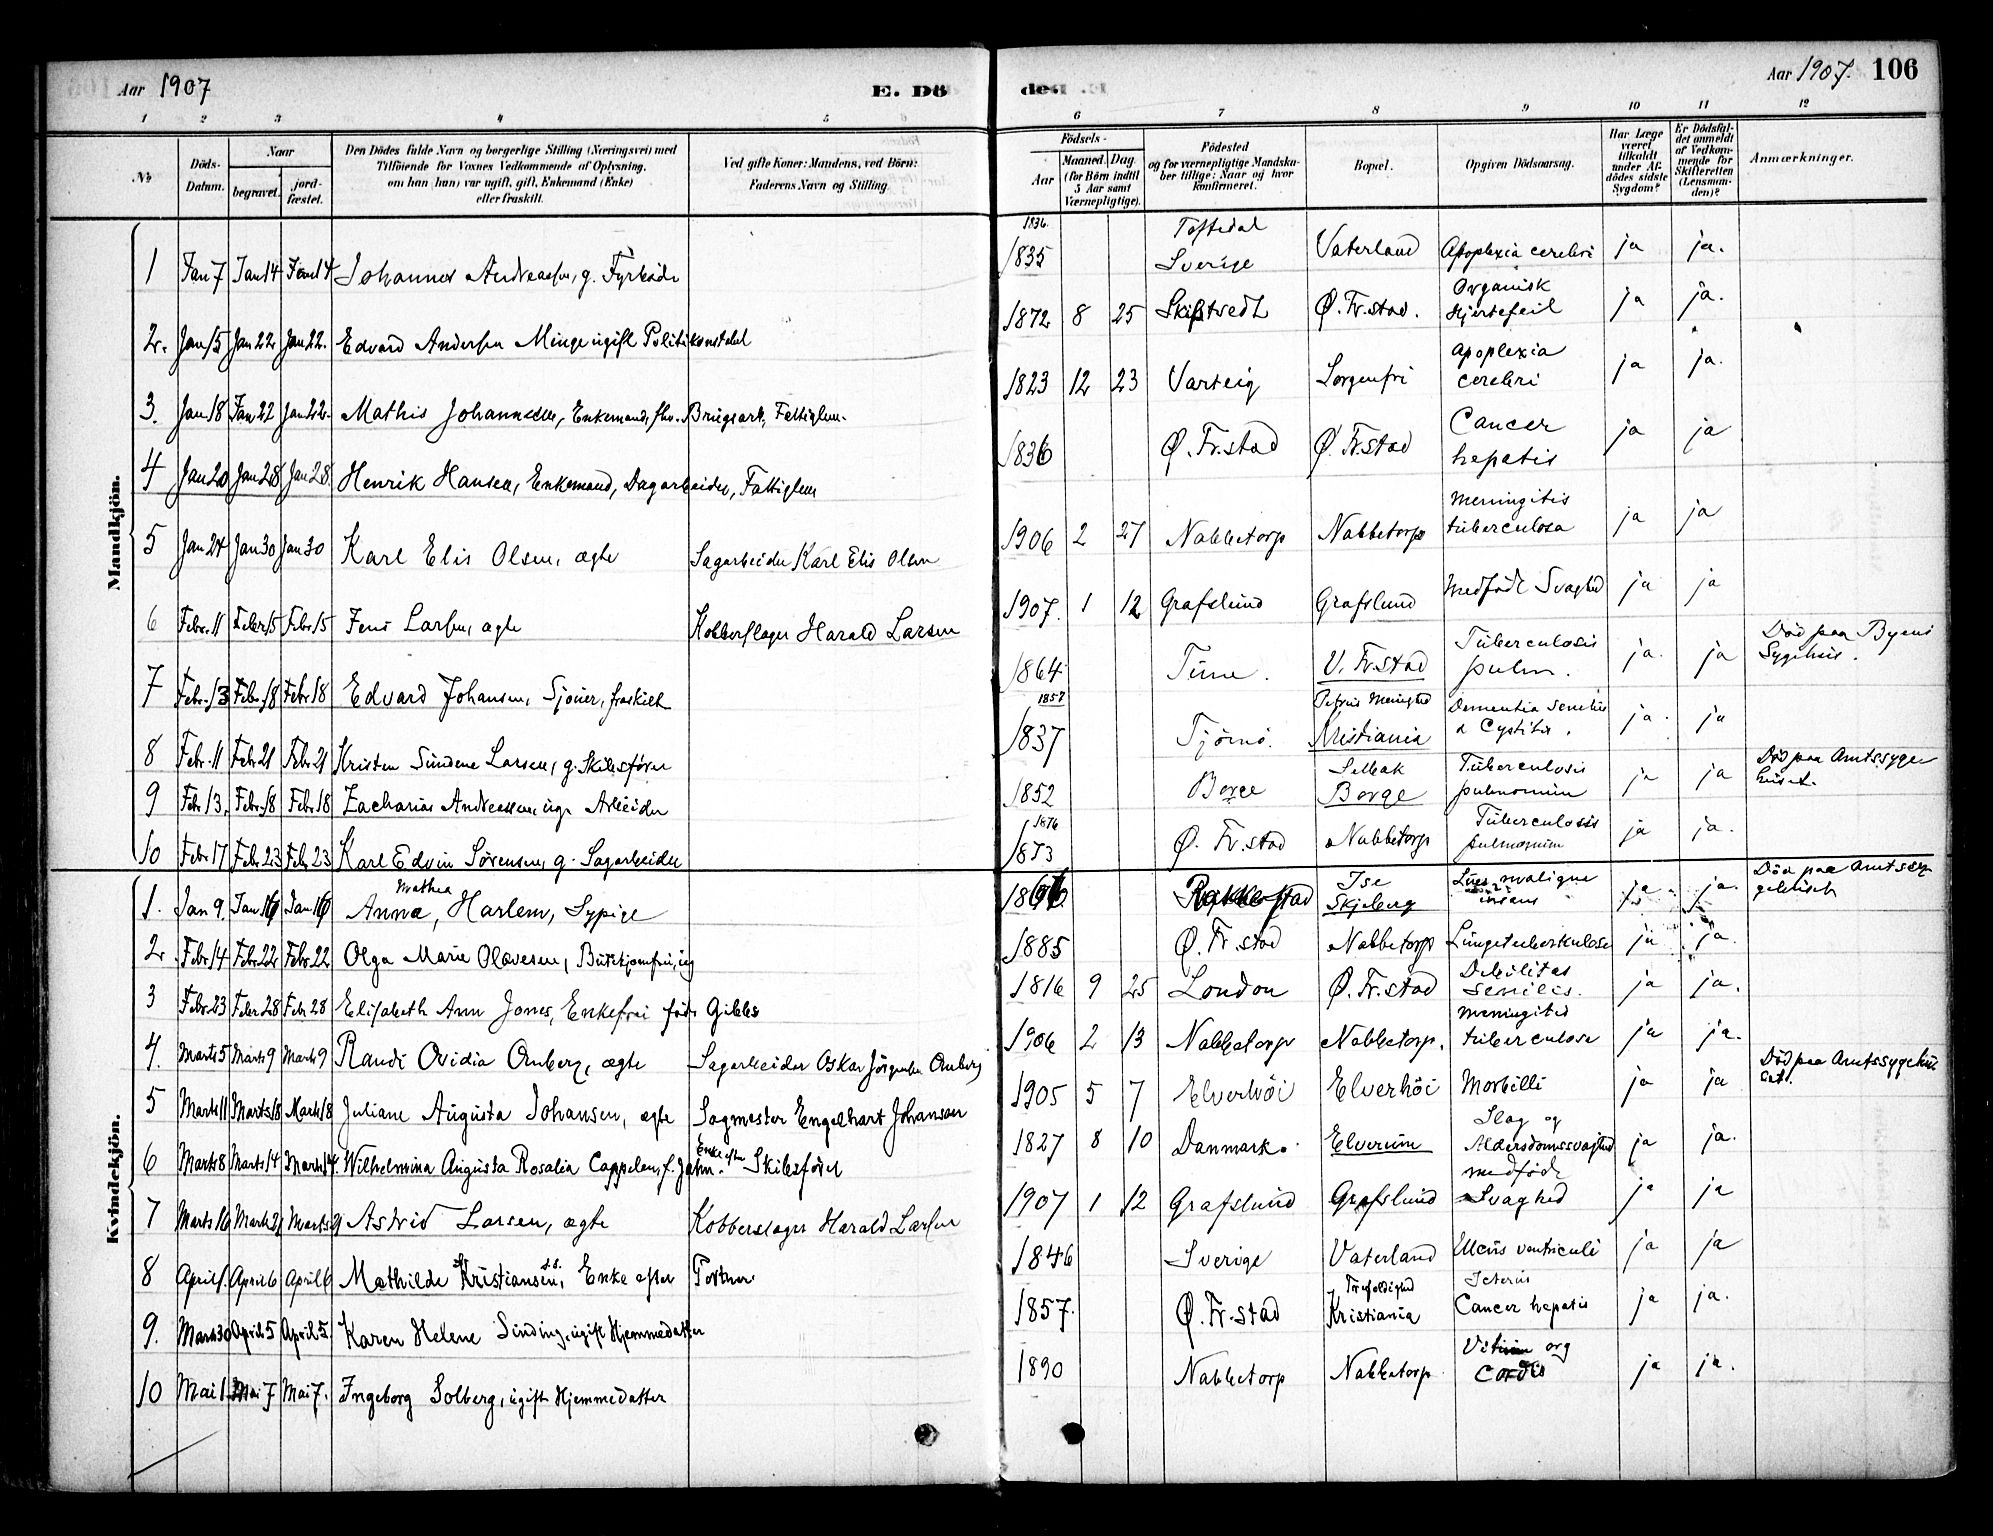 Aar 1907
E. Dö
1 2 3 4 5 6
№
Döds-Datum.
Naar
begravet.
jord-fæstet.
Den Dödes fulde Navn og borgerlige Stilling (Næringsvei) med
Tilföiende for Voxnes Vedkommende af Oplysning,
om han (hun) var ugift, gift, Enkemand (Enke)
eller fraskilt.
Ved gifte Koner: Mandens, ved Börn:
Faderens Navn og Stilling
Mandkjön.
1 Jan 7 Jan 14 Jan 14 Johannes Andreassen, g. Fyrböder
2. Jan 15 Jan 22 Jan 22. Edvard Andersen Minge ugift Politikonstabel
3. Jan 18 Jan 22 Jan 22. Mathis Johannesen, Enkemand, fhv. Brugsarb., Fattiglem.
4 Jan 20 Jan 28 Jan 28. Henrik Hansen, Enkemand, Dagarbeider, Fattiglem
5 Jan 24 Jan 30 Jan 30 Karl Elis Olsen, ægte Sagarbeider Karl Elis Olsen
6 Febr. 11 Febr. 15 Febr. 15 Jens Larsen, ægte Kobberslager Harald Larsen
7 Febr. 13 Febr. 18 Febr 18 Edvard Johansen, Sjöner, fraskilt
8 Febr. 11 Febr 21 Febr 21 Kristen Sundene Larsen, g. Skibsförer
9 Febr 13. Febr. 18 Febr 18 Zacharias Andreassen, ug. Arbeider
10 Febr 17 Febr. 23 Febr 23 Karl Edvin Sörensen, g. Sagarbeider
Kvindekjön.
Mathea
1. Jan 9. Jan 16 Jan 16 Anna, Harlem, Sypige
2. Febr. 14 Febr. 22 Febr. 22 Olga Marie Olavesen, Butikjomfru, ug
3 Febr. 23 Febr 28 Febr 28 Elisabeth Ann Jones, Enkefrue föd Gibbs
4. Marts 5 Marts 9 Marts 9 Randi Ovidia Ornberg, ægte Sagarbeider Oskar Jörgensen Ornberg
5 Marts 11 Marts 18 Marts 18 Juliane Augusta Johansen, ægte Sagmester Engelhart Johansen
6 Marts 8 Marts 14 Marts 14. Wilhelmina Augusta Rosalia Cappelen, f. Jahn. Enke efter Skibsförer
7 Marts 16 Marts 21 Marts 21 Astrid Larsen, ægte Kobberslager Harald Larsen
8 April 1. April 6 April 6 Mathilde Kristiansen, Enke efter Portner
9. Marts 30 April 5 April 5. Karen Helene Sinding, ugift Hjemmedatter
10 Mai 1 Mai 7 Mai 7. Ingeborg Solberg, ugift Hjemmedatter
Aar 1907. 106
des E.
6 7 8 9 10 11 12
Födsels-
Aar
Maaned Dag
(for Börn indtil
5 Aar samt
Værnepligtige).
Födested
og for værnepligtige Mandska-
ber tillige: Naar og hvor
konfirmeret.
Bopæl.
Opgiven Dödsaarsag.
Har Læge
været
tilkaldt
under Af-
dödes sidste
Sygdom?
Er Dödsfal-
det anmeldt
af Vedkom-
mende for
Skifteretten
(Lensman-
den)?
Anmærkninger.
1836. Töftedal
1835 Sverige Vaterland Apoplexia cerebri ja ja.
Organisk
1872 8 25 Skiptvedt Ø. Fr.stad. Hjertefeil ja ja.
Apoplexia
1823 12 23 Varteig Sorgenfri cerebri ja ja.
Cancer
1836 Ø. Fr.stad Ø. Fr.stad hepatis ja ja
Meningitis
1906 2 27 Nabbetorp Nabbetorp tuberculosa ja ja
1907. 1 12 Grafslund Grafslund Medfödt Svaghed ja ja
Tuberculosis Död paa Byens
1864 Tune. V. Fr.stad pulm. ja. ja Sygehus.
1857 Petrus Menighed Dementia senilis
1837 Tjömö. Kristiania & Cystitis. ja. ja
Selbak Tuberculosis Död paa Amtssyge
1852 Borge Borge pulmonum ja ja huset.
1876 Tuberculosis
1873 Ø. Fr.stad Nabbetorp pulmonum ja ja.
Ise Lues maligna Död paa Amtssy
1866 Rakkestad Skjeberg ja ja. gehuset
1885 Ø. Fr.stad Nabbetorp Lungetuberkulose ja ja.
Debilitas
1816 9 25 London Ø. Fr.stad senilis. ja ja.
Meningitis
1906 2 13 Nabbetorp Nabbetorp. tuberculosa ja ja.
1905 5 7 Elverhöi Elverhöi Morbilli ja ja Död paa Amtssygehu
set.
Slag og
1827 8 10 Danmark. Elverum Alderdomssvaghed ja ja.
medfödt
1907 1 12 Grafslund Grafslund Svaghed ja ja
1846 Sverige Vaterland Ulcus ventriculi ja ja
Trefoldighed Icterus
1857. Ø. Fr.stad Kristiania Cancer hepatis ja ja.
Vitium org
1890 Nabbetorp Nabbetorp Cordis ja ja.